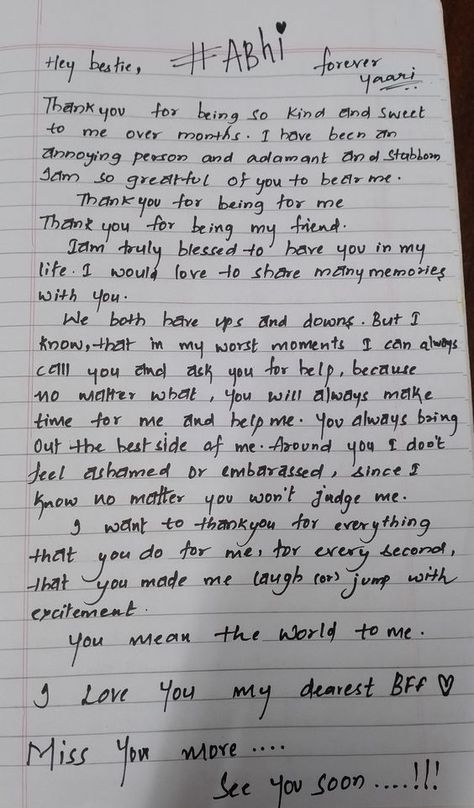 Hey bestie, #ABhi forever
yaari
Thankyou for being so kind and sweet
to me over months. I have been an
annoying person and adamant and stabborn
Iam so greatful of you to bear me.
Thankyou for being for me
Thank you for being my friend.
Iam truly blessed to have you in my
life. I would love to share many memories
with you.
We both have ups and downs. But I
know, that in my worst moments I can always
call you and ask you for help, because
no matter what, you will always make
time for me and help me. You always bring
out the best side of me. Around you I don't
feel ashamed or embarassed, since I
know no matter you won't judge me.
I want to thankyou for everything
that you do for me, for every second,
that you made me laugh (or) jump with
excitement.
You mean the world to me.
I Love You my dearest BFF ♡
Miss You more ....
See you soon ....!!!